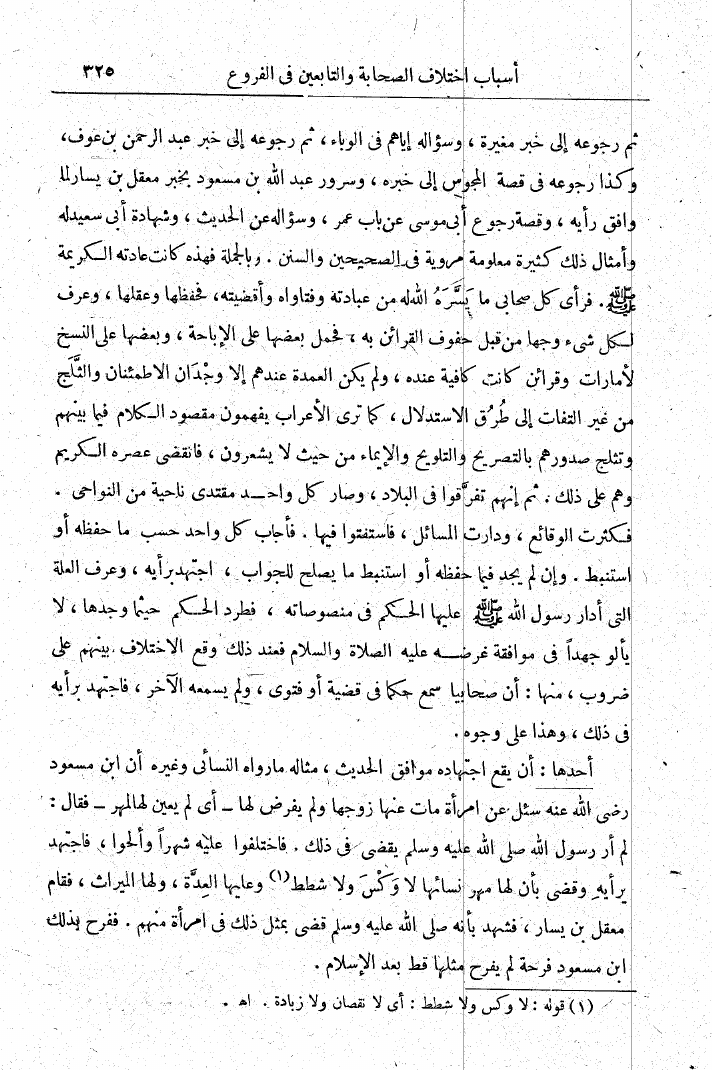 أسباب اختلاف الصحابة والتابعين فى الفروع ٣٢٥
ثم رجوعه إلى خبر مغيرة ، وسؤاله إياهم فى الوباء ، ثم رجوعه إلى خبر عبد الرحمن بن عوف،
وكذا رجوعه فى قصة المجوس إلى خبره ، وسرور عبد الله بن مسعود بخبر معقل بن يسار لما
وافق رأيه ، وقصة رجوع أبى موسى عن باب عمر ، وسؤاله عن الحديث ، وشهادة أبى سعيد له
وأمثال ذلك كثيرة معلومة مروية فى الصحيحين والسنن . وبالجملة فهذه كانت عادته الكريمة
ﷺ. فرأى كل صحابى ما يَسَّرَهُ الله له من عبادته وفتاواه وأقضيته، فحفظها وعقلها ، وعرف
لكل شىء وجها من قبل حفوف القرائن به ، فحمل بعضها على الإباحة ، وبعضها على النسخ
لأمارات وقرائن كانت كافية عنده ، ولم يكن العمدة عندهم إلا وجْدَان الاطمئنان والثَّلَج
من غير التفات إلى طُرُق الاستدلال ، كما ترى الأعراب يفهمون مقصود الكلام فيما بينهم
وتثلج صدورهم بالتصريح والتلويح والإيماء من حيث لا يشعرون ، فانقضى عصره الكريم
وهم على ذلك . ثم إنهم تفرَّقوا فى البلاد ، وصار كل واحد مقتدى ناحية من النواحى .
فكثرت الوقائع ، ودارت المسائل ، فاستفتوا فيها . فأجاب كل واحد حسب ما حفظه أو
استنبط . وإن لم يجد فيما حفظه أو استنبط ما يصلح للجواب ، اجتهد برأيه ، وعرف العلة
التى أدار رسول الله ﷺ عليها الحكم فى منصوصاته ، فطرد الحكم حيثما وجدها ، لا
يألو جهداً فى موافقة غرضه عليه الصلاة والسلام فعند ذلك وقع الاختلاف بينهم على
ضروب ، منها : أن صحابيا سمع حكما فى قضية أو فتوى ، ولم يسمعه الآخر ، فاجتهد برأيه
فى ذلك ، وهذا على وجوه .
أحدها : أن يقع اجتهاده موافق الحديث ، مثاله مارواه النسائى وغيره أن ابن مسعود
رضى الله عنه سئل عن امرأة مات عنها زوجها ولم يفرض لها – أى لم يعين لها المهر – فقال :
لم أر رسول الله صلى الله عليه وسلم يقضى فى ذلك . فاختلفوا عليه شهراً وألحوا ، فاجتهد
برأيه وقضى بأن لها مهر نسائها لا وَكْسَ ولا شطط(١) وعليها العِدَّة ، ولها الميراث ، فقام
معقل بن يسار ، فشهد بأنه صلى الله عليه وسلم قضى بمثل ذلك فى امرأة منهم . ففرح بذلك
ابن مسعود فرحة لم يفرح مثلها قط بعد الإسلام .
(١) قوله : لا وكس ولا شطط : أى لا نقصان ولا زيادة . اه .